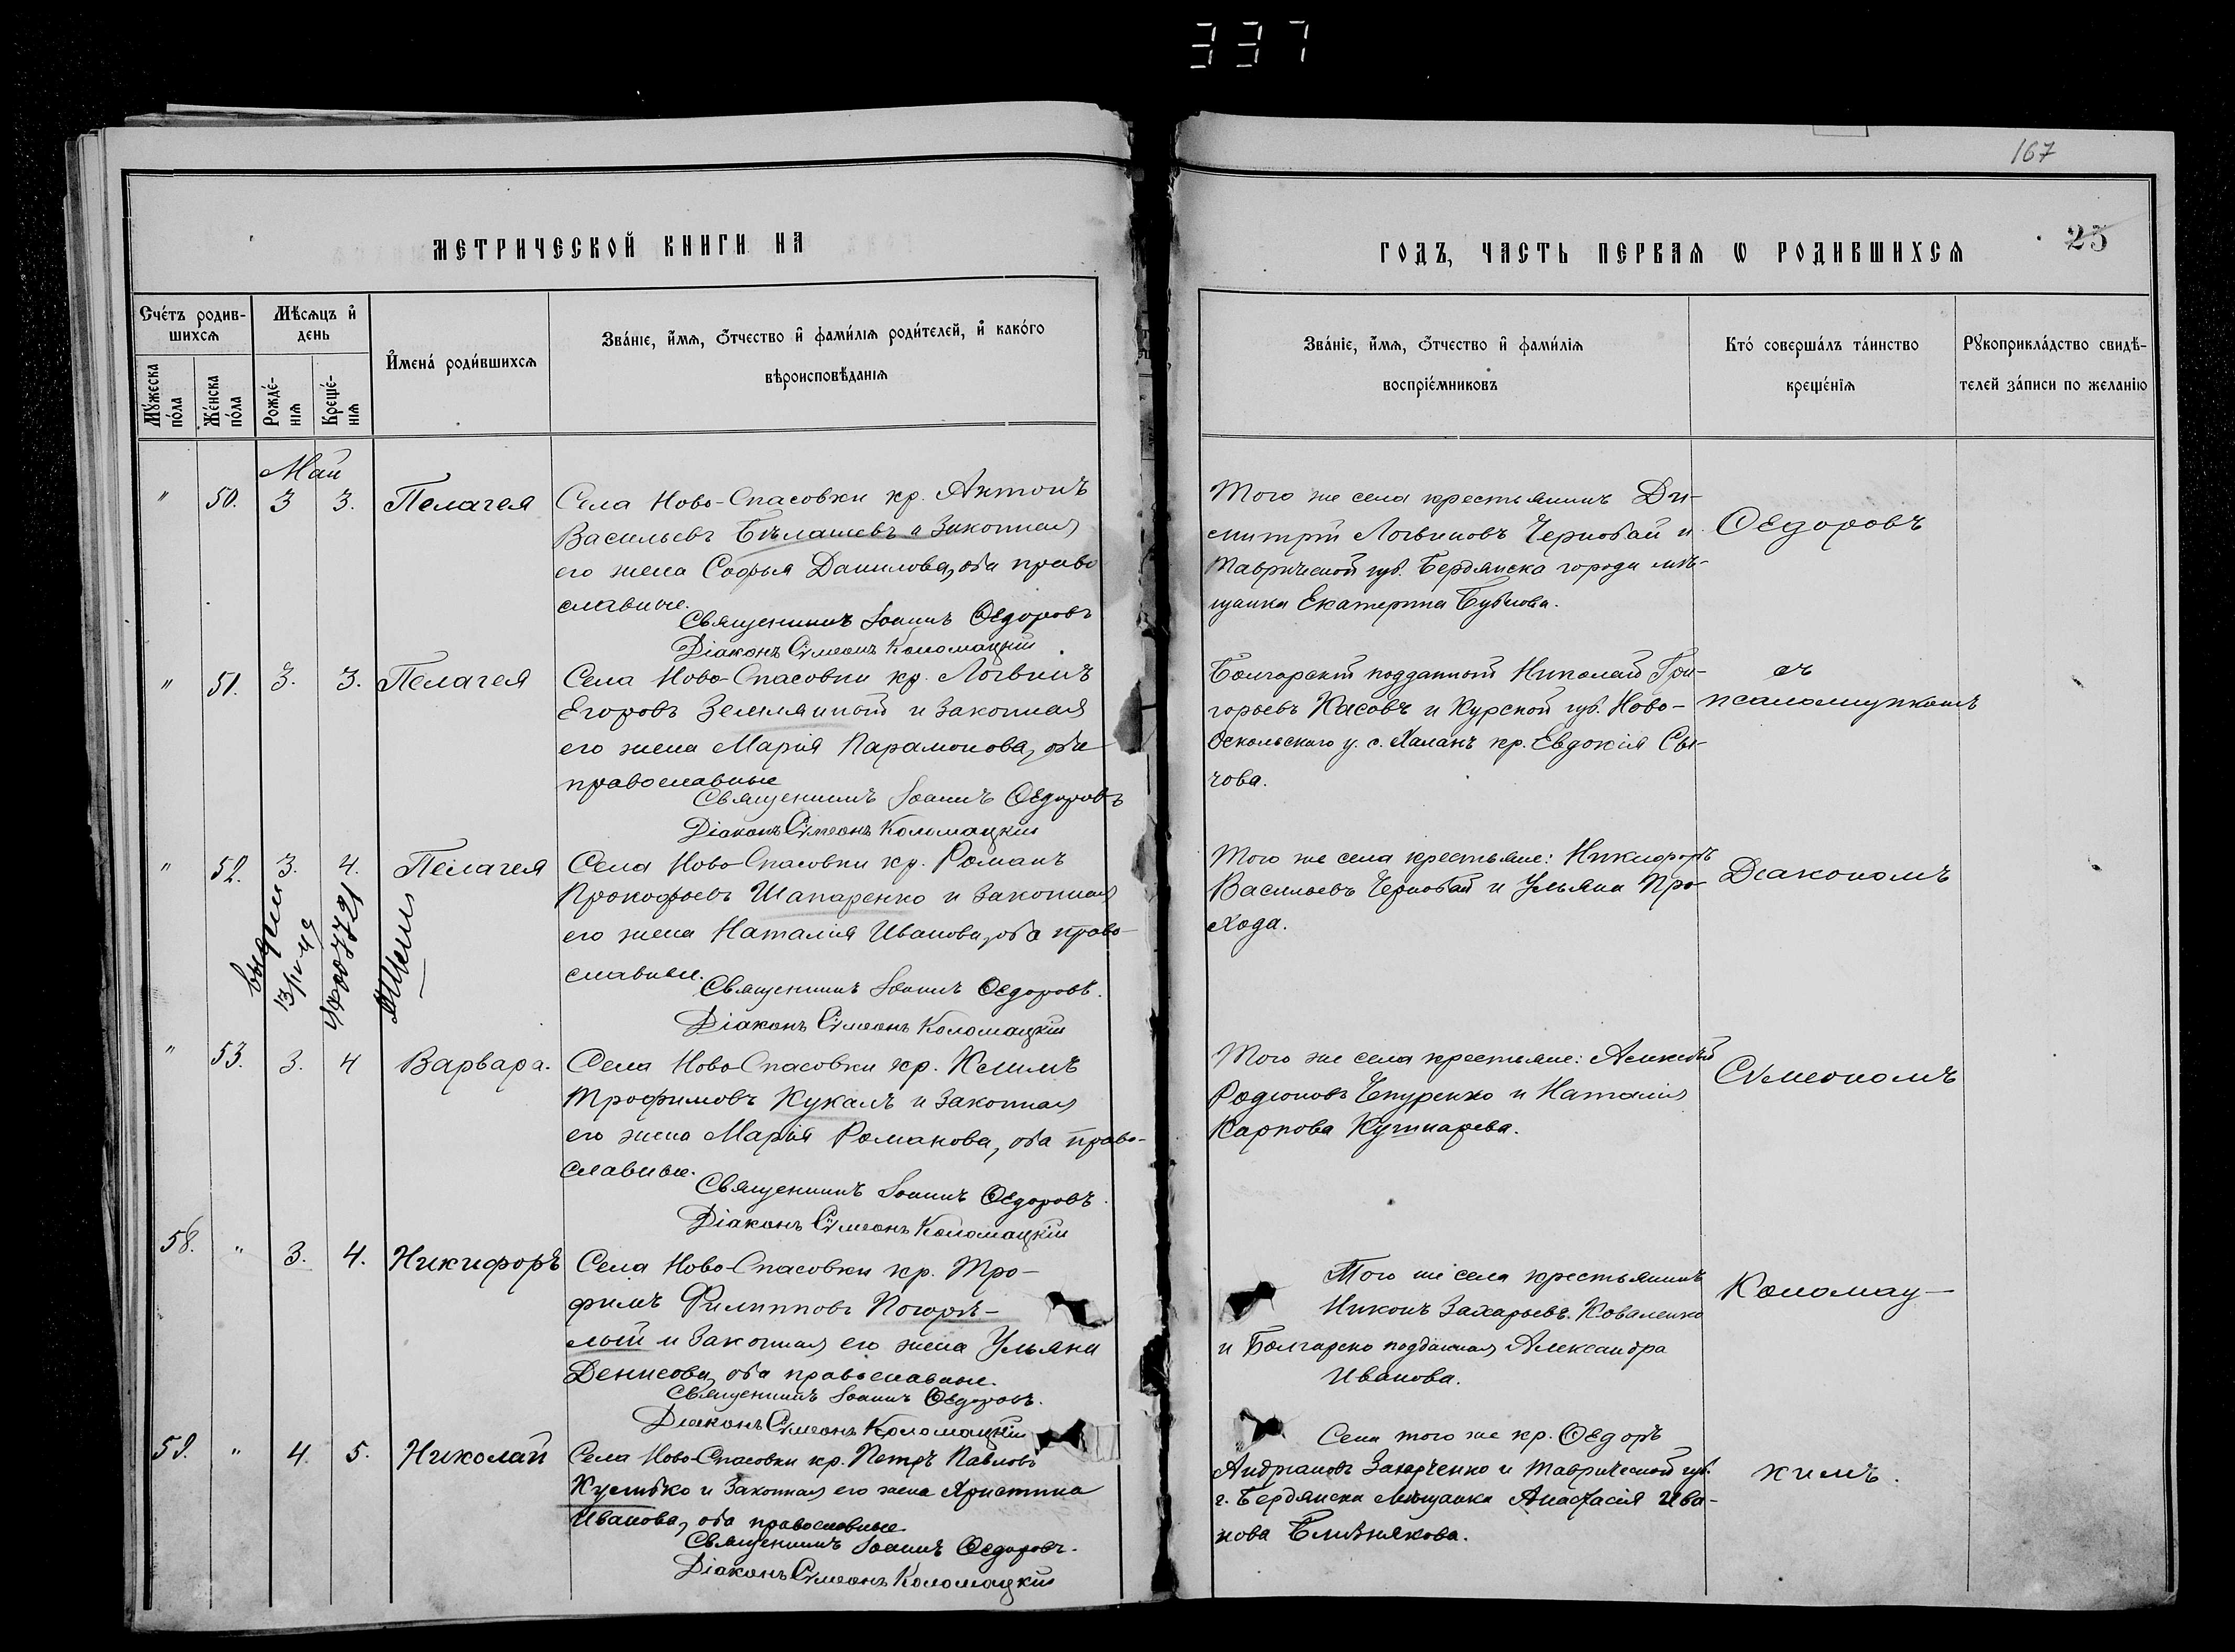 337
167
МЕТРИЧЕСКОЙ КНИГИ НА
ГОДЪ, ЧАСТЬ ПЕРВАѦ Ѡ РОДИВШИХСѦ
25
Счéтъ родив-
шихсѧ
Мѣсѧцъ и
день
Мꙋжеска
пола
Женска
пола
Рожде-
нїѧ
Креще-
нїѧ
Имена родившихсѧ
Званїе, имѧ, ѿчество и фамилїѧ родителей, и какого
вѣроисповѣданїѧ
Званїе, имѧ, ѿчество и фамилїѧ
воспрїемниковъ
Кто совершалъ таинство
крещенїѧ
Рꙋкоприкладство свидѣ-
телей записи по желанїю
Май
" 50. 3 3. Пелагея
Села Ново-Спасовки кр. Антонъ
Васильевъ Бѣлашевъ и законная
его жена Софья Данилова, оба право
славные.
Священникъ Іоаннъ Ѳедоровъ
Діаконъ Сѵмеонъ Коломацкій
Того же села крестьянинъ Ди-
митрій Логвиновъ Чернобай и
Таврической губ. Бердянска города мѣ-
щанка Екатерина Бубнова.
Ѳедоровъ
" 51. 3. 3. Пелагея
Села Ново-Спасовки кр. Логвинъ
Егоровъ Земляной и законная
его жена Марія Парамонова, оба
православные
Священникъ Іоаннъ Ѳедоровъ
Діаконъ Сѵмеонъ Коломацкій
Болгарскій подданный Николай Гри-
горьевъ Касовъ и Курской губ. Ново-
Оскольскаго у. с. Халанъ кр. Евдокія Сы-
чова.
съ
псаломщикомъ
" 52. 3. 4. Пелагея
Села Ново-Спасовки кр. Романъ
Прокофьевъ Шапаренко и законная
его жена Наталія Иванова, оба право-
славные.
Священникъ Іоаннъ Ѳедоровъ.
Діаконъ Сѵмеонъ Коломацкій
Того же села крестьяне: Никифоръ
Васильевъ Чернобай и Ульяна Про-
хода.
Діакономъ
" 53. 3. 4 Варвара.
Села Ново-Спасовки кр. Климъ
Трофимовъ Кукалъ и законная
его жена Марія Романова, оба право-
славные.
Священникъ Іоаннъ Ѳедоровъ.
Діаконъ Сѵмеонъ Коломацкій
Того же села крестьяне: Алексѣй
Родіоновъ Чепуренко и Наталія
Карпова Кушнарева.
Сѵмеономъ
58. " 3. 4. Никифоръ
Села Ново-Спасовки кр. Тро-
фимъ Филипповъ Погорѣ-
лый и законная его жена Ульяна
Денисова, оба православные.
Священникъ Іоаннъ Ѳедоровъ.
Діаконъ Сѵмеонъ Коломацкій
Того же села крестьянинъ
Никонъ Захарьевъ Коваленко
и Болгарско подданная Александра
Иванова.
Коломац-
59. " 4. 5. Николай
Села Ново-Спасовки кр. Петръ Павловъ
и законная его жена Христина
Иванова, оба православные
Священникъ Іоаннъ Ѳедоровъ.
Діаконъ Сѵмеонъ Коломацкій
Села того же кр. Ѳедоръ
Андріановъ Захарченко и Таврической губ.
г. Бердянска мѣщанка Анастасія Ива-
нова Близнякова.
кимъ.